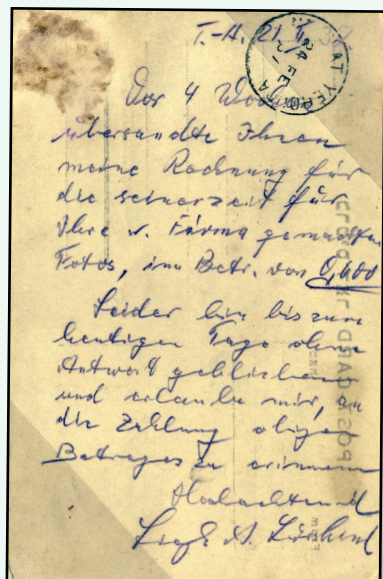 T.-A. 21/
Vor 4 Woch
übersandte Ihnen
meine Rechnung für
die seinerzeit für
Ihre w. Firma gemachten
Fotos, im Betr. von 0,600
Leider bin bis zum
heutigen Tage ohne
Antwort geblieben
und erlaube mir, an
die Zahlung obigen
Betrages zu erinnern
Hochachtend
POSTCARD